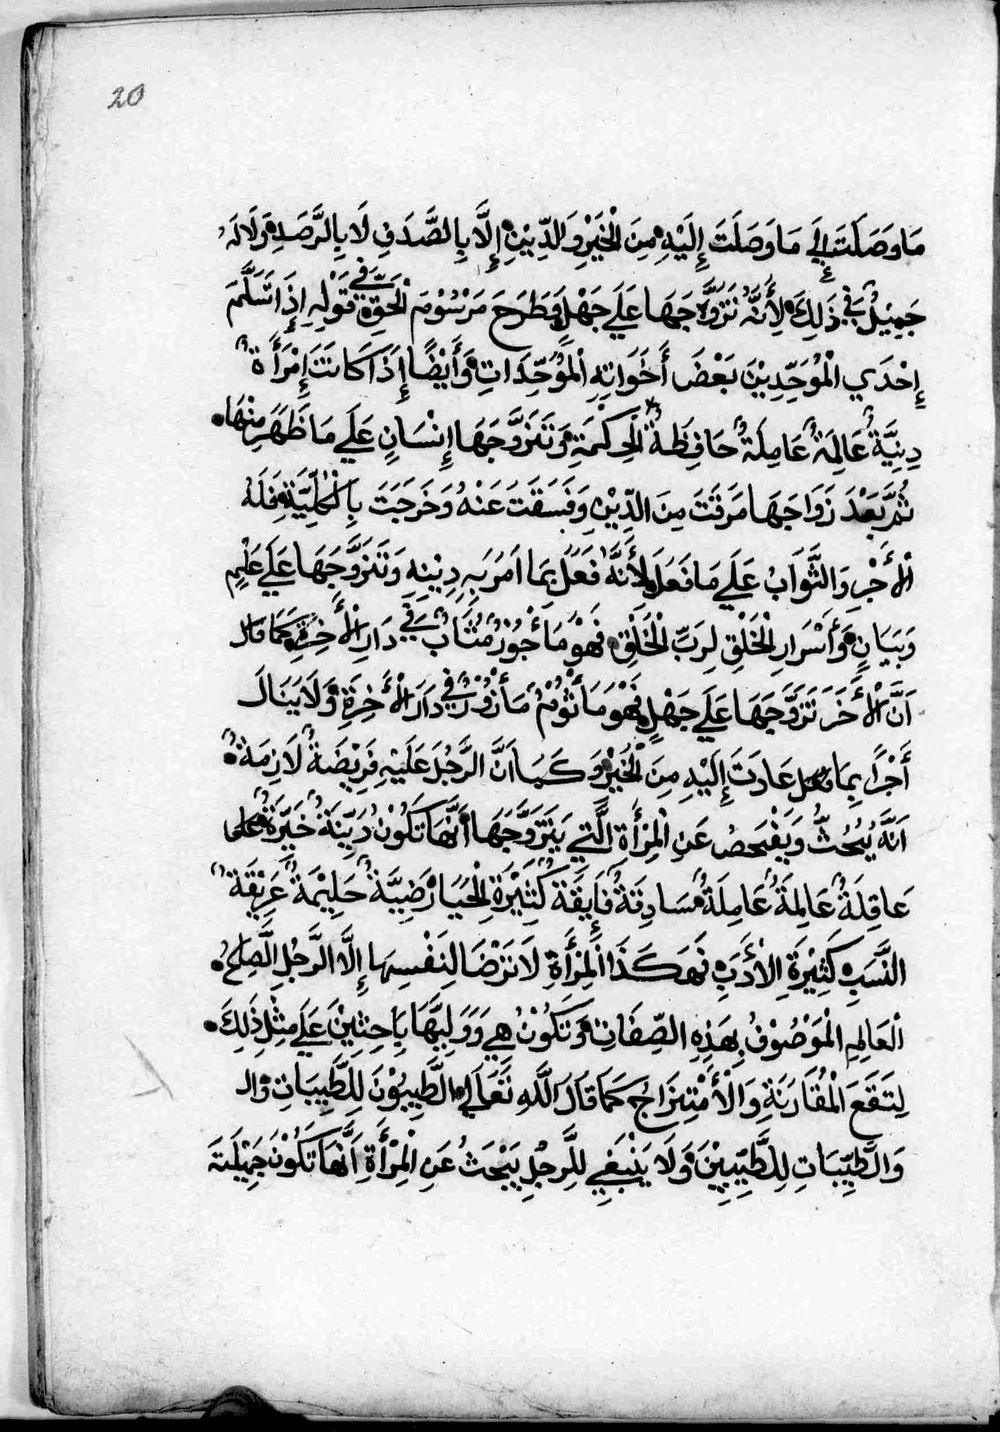 20
مَا وَصَلَتَ إِلَي مَا وَصَلَتَ إِلَيْهِ مِنَ الْخَيْرِ وَالدِّيْنِ إِلَّا بِالصَّدَفِ لَا بِالرَّصَدِ وَلَا لَهُ
جَمِيْلٌ فِي ذَلِكَ لِأَنَّهُ تَزَوَّجَهَا عَلَي جَهْلٍ وَطَرَحَ مَرْسُوْمَ الْحَقِّ فِي قَوْلِهِ اِذَا تَسَلَّمَ
إِحْدَي الْمُوَحِّدِيْنَ بَعْضَ أَخَوَاتِهِ الْمُوَحِّدَاتِ وَأَيْضًا إِذَا كَانَتَ إِمْرَأَةٌ
دِيِنِيَّةٌ عَالِمَةٌ عَامِلَةٌ حَافِظَةُ الْحِكْمَةِ وَتَزَوَّجَهَا إِنْسَانٍ عَلَي مَا ظَهَرَ مِنْهَا
ثُمَّ بَعْدَ زَوَاجَهَا مَرَقَتَ مِنَ الدِّيْنِ وَفَسَقَتَ عَنْهُ وَخَرَجَتَ بِالْكُلِّيَّةِ فَلَهُ
الْأَجْرِ وَالثَّوَابْ عَلَي مَا فَعَلَ لِأَنَّهُ فَعَلَ بِمَا اَمَرَ بِهِ دِيْنِهِ وَتَزَوَّجَهَا عَلَي عِلْمٍ
وَبَيَانٍ وَأَسْرَارِ الْخَلْقِ لِرَبِّ الْخَلْقِ فَهُوَ مَأْجُوْرٌ مُثَابٌ فِي دَارِ الْأَخِرَةِ كَمَا قَالَ
اَنَّ الْأَخَرَ تَزَوَّجَهَا عَلَي جَهْلٍ فَهُوَ مَأْثُوْمٌ مَأْزُوْرٌ فِي دَارِ الْأَخِرَةِ وَلَا يَنَالَ
أَجْرًا بِمَا عَادَتَ إِلَيْهِ مِنَ الْخَيْرِ وَكَمَا اَنَّ الرَّجُلَ عَلَيْهِ فَرِيْضَةٌ لَازِمَةٌ
اَنَّهُ يُبْحُثُ وَيَفْحَصُ عَنِ الْمِرْأَةِ الَّتِي يَتَزَوَّجَهَا أَنَّهَا تَكُوْنُ دَيِّنَةٌ خَيِّرَةٌ
عَاقِلَةٌ عَالِمَةٌ عَامِلَةٌ صَادِقَةٌ فَايِقَةٌ كَثِيْرَةِ الْحَيَا رَضِيَّةٌ حَلِيْمَةٌ عَرِيْقَةٌ
النَّسَبِ كَثِيْرَةِ الْأَدَبِ فَهَكَذَا الْمِرْأَةِ لَا تَرْضَا لِنَفْسِهَا إِلَّا الرَّجُلِ الصَّالِحْ
الْعَالِمِ الْمَوْصُوْفُ بِهَذِهِ الصِّفَاتِ وَتَكُوْنُ هِي وَوَلِيِّهَا بَاحِثِيْنَ عَلَي مِثْلِ ذَلِكَ
لِتَقَعَ الْمُقَارَنَةِ وَالْأَمْتِزَاجْ كَمَا قَالَ اللَّهِ تَعَالَي الطَّيِبُوْنَ لِلطَّيِبَاتِ وَالـ
وَالطَّيِّبَاتِ لِلطَّيِّبِيْنَ وَلَا يَنْبَغِي لِلرَّجُلِ يَبْحَثُ عَنِ الْمِرْأَةِ اَنَّهَا تَكُوْنَ جَمِيْلَةَ